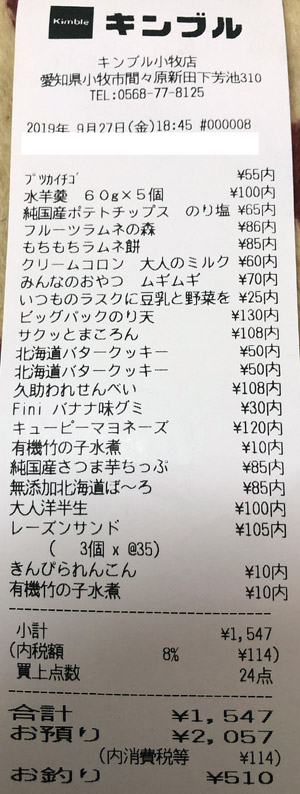 Kimble キンブル
キンブル小牧店
愛知県小牧市間々原新田下芳池310
TEL:0568-77-8125
2019年 9月27日(金)18:45 #000008
ﾌﾞﾂｶｲﾁｺﾞ ¥55内
水羊羹 60g×5個 ¥100内
純国産ポテトチップス のり塩 ¥65内
フルーツラムネの森 ¥86内
もちもちラムネ餅 ¥85内
クリームコロン 大人のミルク ¥60内
みんなのおやつ ムギムギ ¥70内
いつものラスクに豆乳と野菜を ¥25内
ビッグパックのり天 ¥130内
サクッとまころん ¥108内
北海道バタークッキー ¥50内
北海道バタークッキー ¥50内
久助われせんべい ¥108内
Fini バナナ味グミ ¥30内
キューピーマヨネーズ ¥120内
有機竹の子水煮 ¥10内
純国産さつま芋ちっぷ ¥85内
無添加北海道ば～ろ ¥85内
大人洋半生 ¥100内
レーズンサンド ¥105内
( 3個 x @35)
きんぴられんこん ¥10内
有機竹の子水煮 ¥10内
小計 ¥1,547
(内税額 8% ¥114)
買上点数 24点
合計 ¥1,547
お預り ¥2,057
(内消費税等 ¥114)
お釣り ¥510